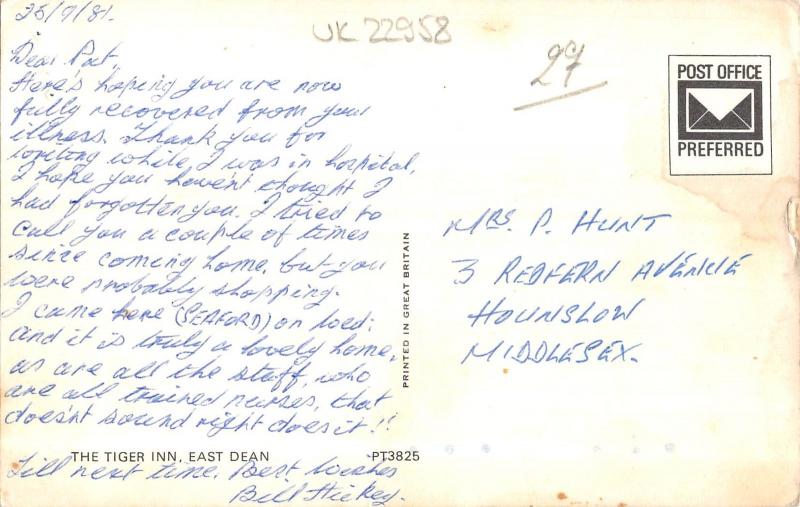 25/7/81.
UK 22958
27
Dear Pat,
Here's hoping you are now
fully recovered from your
illness. Thank you for
writing while I was in hospital,
I hope you haven't thought I
had forgotten you. I tried to
call you a couple of times
since coming home, but you
were probably shopping.
I came here (SEAFORD) on Wed:
and it is truly a lovely home,
as are all the staff, who
are all trained nurses, that
doesn't sound right does it!!
Till next time. Best Wishes
Bill Hickey.
THE TIGER INN, EAST DEAN
PT3825
PRINTED IN GREAT BRITAIN
POST OFFICE
PREFERRED
MRS. P. HUNT
3 REDFERN AVENUE
HOUNSLOW
MIDDLESEX.